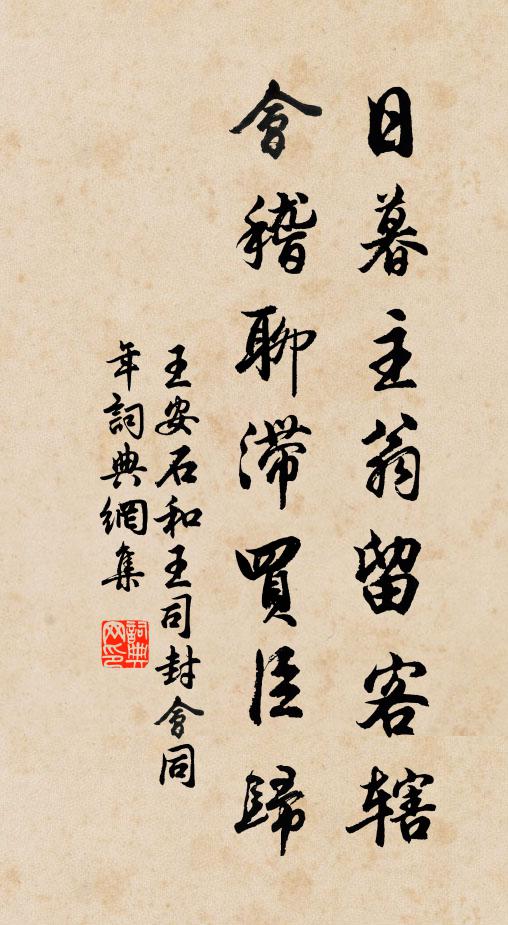 日暮主翁留客辖
會稽聊滞買臣歸
王安石和王司封會同
年詞典網集
詞典網印